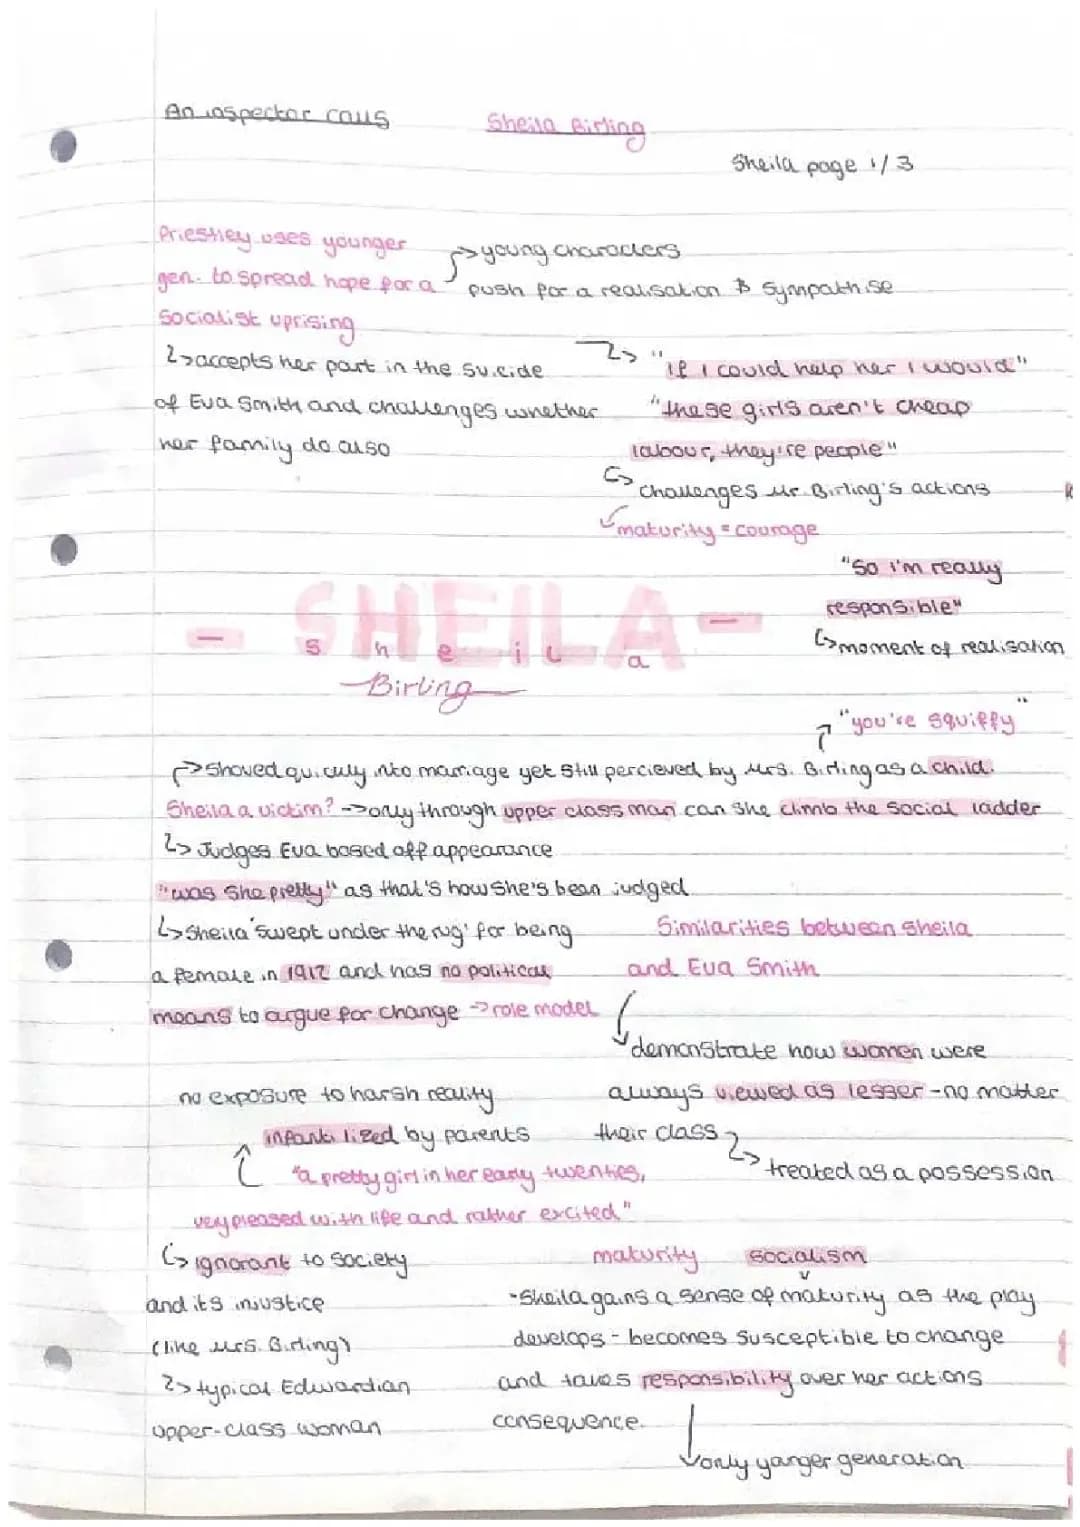 An inspector calls
Sheila Birling
Sheila page 1/3
Priestley uses younger
gen. to spread hope for a
socialist uprising
↳accepts her part in the suicide
of Eva Smith and challenges whether
her family do also
→young characters
push for a realisation & sympathise
↳ "if i could help her i would"
"these girls aren't cheap
labour, they're people"
↳ challenges Mr. Birling's actions
maturity = courage
"So i'm really
responsible"
↳moment of realisation
- SHEILA -
s h e i l a
Birling
"you're squiffy"
→Shoved quickly into marriage yet still percieved by Mrs. Birling as a child.
Sheila a victim? →only through upper class man can she climb the social ladder
↳ Judges Eva based off appearance
"was she pretty" as that's how she's been judged
↳Sheila 'swept under the rug' for being
a female in 1912 and has no political
means to argue for change →role model
Similarities between sheila
and Eva Smith
demonstrate how women were
always viewed as lesser - no matter
their class
↳ treated as a possession
no exposure to harsh reality
infantilized by parents
"a pretty girl in her early twenties,
very pleased with life and rather excited"
↳ ignorant to society
and its injustice
(like Mrs. Birling)
↳ typical Edwardian
upper-class woman
maturity socialism
-Sheila gains a sense of maturity as the play
develops - becomes susceptible to change
and takes responsibility over her actions
consequence.
only yanger generation